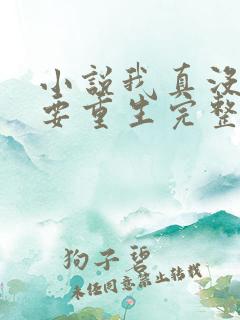 小说我真没
要重生完整
狗子碧
未经同意禁止转载